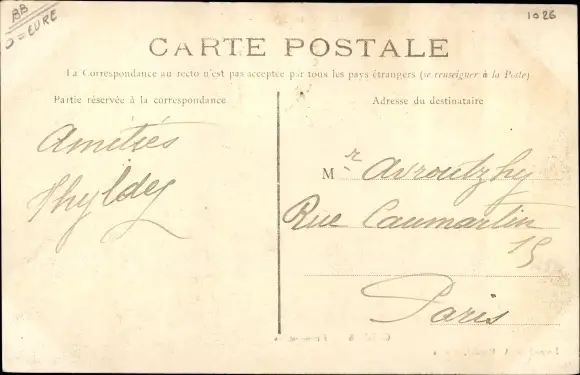 BB
D = EURE
1026
CARTE POSTALE
La Correspondance au recto n'est pas acceptée par tous les pays étrangers (se renseigner à la Poste)
Partie réservée à la correspondance
Adresse du destinataire
Amitiés
Mr Avroutzhy
Rue Caumartin
15
Paris